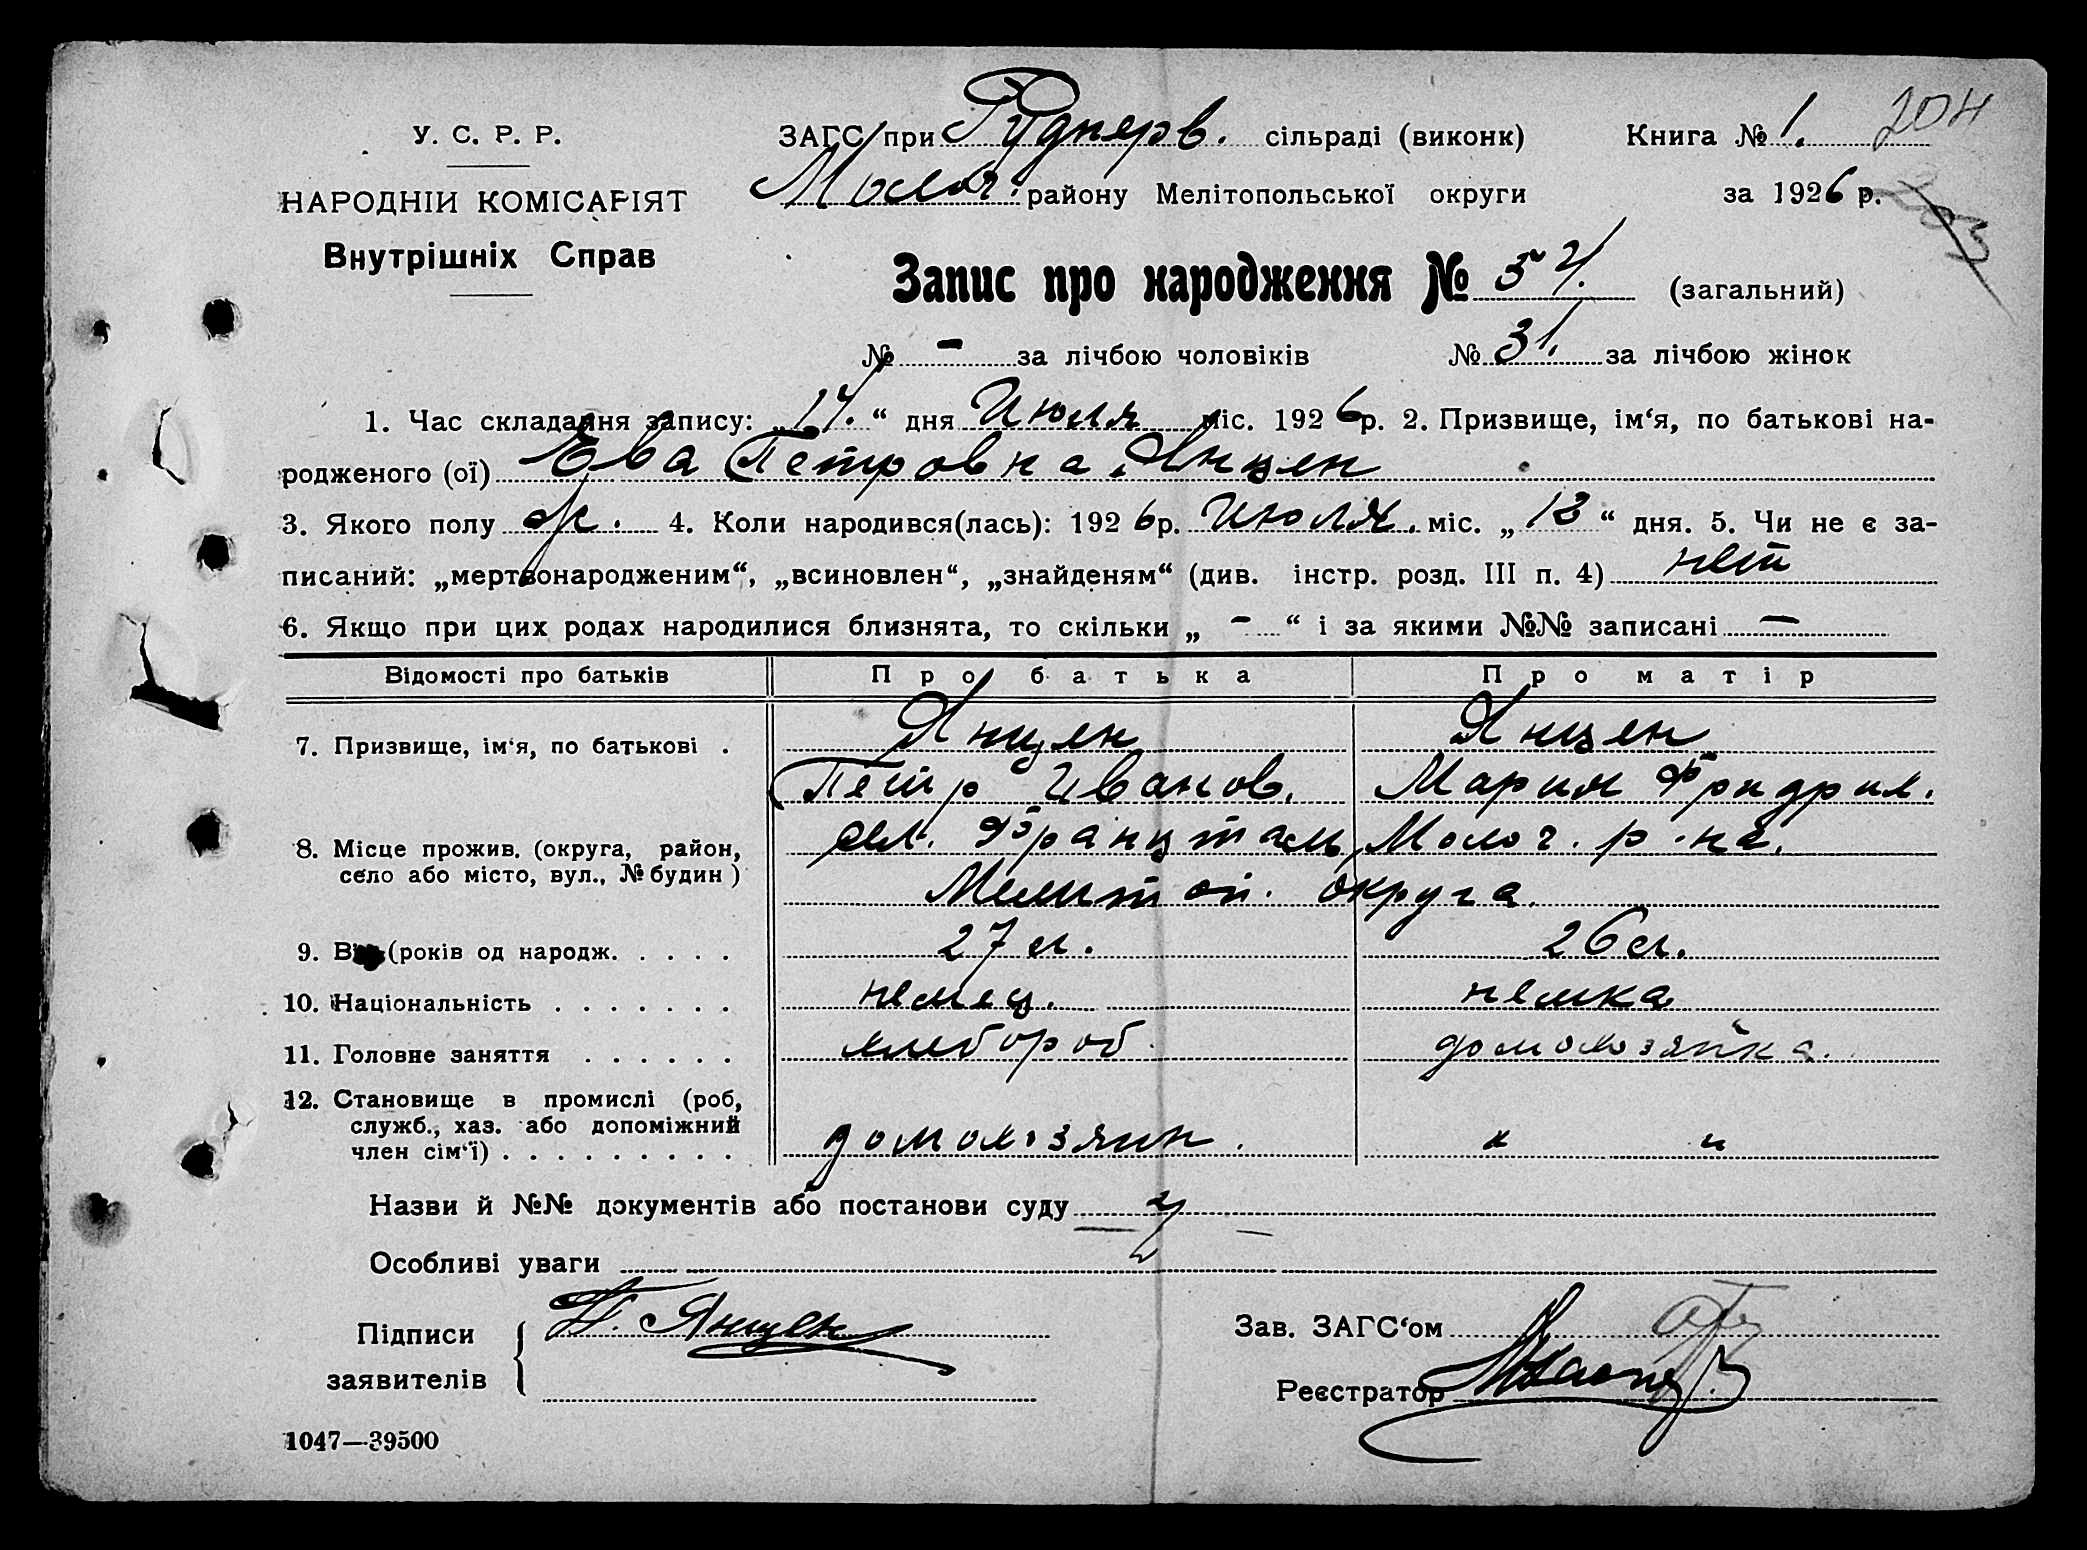 У. С. Р. Р.
НАРОДНІЙ КОМІСАРІЯТ
Внутрішніх Справ
ЗАГС при Рикнерв. сільраді (виконк)
Книга № 1. 204
Молоч. району Мелітопольської округи
за 1926 р. 203
Запис про народження № 54. (загальний)
№ - за лічбою чоловіків № 31. за лічбою жінок
1. Час складання запису: „17.“ дня Июля міс. 1926р. 2. Призвище, ім‘я, по батькові на-
родженого (ої) Ева Петровна Янцен
3. Якого полу ж. 4. Коли народився(лась): 1926р. Июля. міс. „13“ дня. 5. Чи не є за-
писаний: „мертвонародженим“, „всиновлен“, „знайденям“ (див. інстр. розд. III п. 4) нет
6. Якщо при цих родах народилися близнята, то скільки „ - “ і за якими №№ записані —
Відомості про батьків Про батька Про матір
7. Призвище, ім‘я, по батькові . Янцен Янцен
Петр Иванов. Мария Фридрих.
8. Місце прожив. (округа, район, сел. Францталь, Молоч. р-на.
село або місто, вул., № будин) Мелитоп. округа.
9. Вік (років од народж. . . . . 27 л. 26 л.
10. Національність . . . . . . . немец. немка
11. Головне заняття . . . . . . хлебороб. домохозяйка.
12. Становище в промислі (роб,
служб., хаз. або допоміжний
член сім‘ї) . . . . . . . . . домохозяин. " "
Назви й №№ документів або постанови суду
Особливі уваги
Підписи П. Янцен
заявителів
Зав. ЗАГС‘ом
Реєстратор
1047—39500